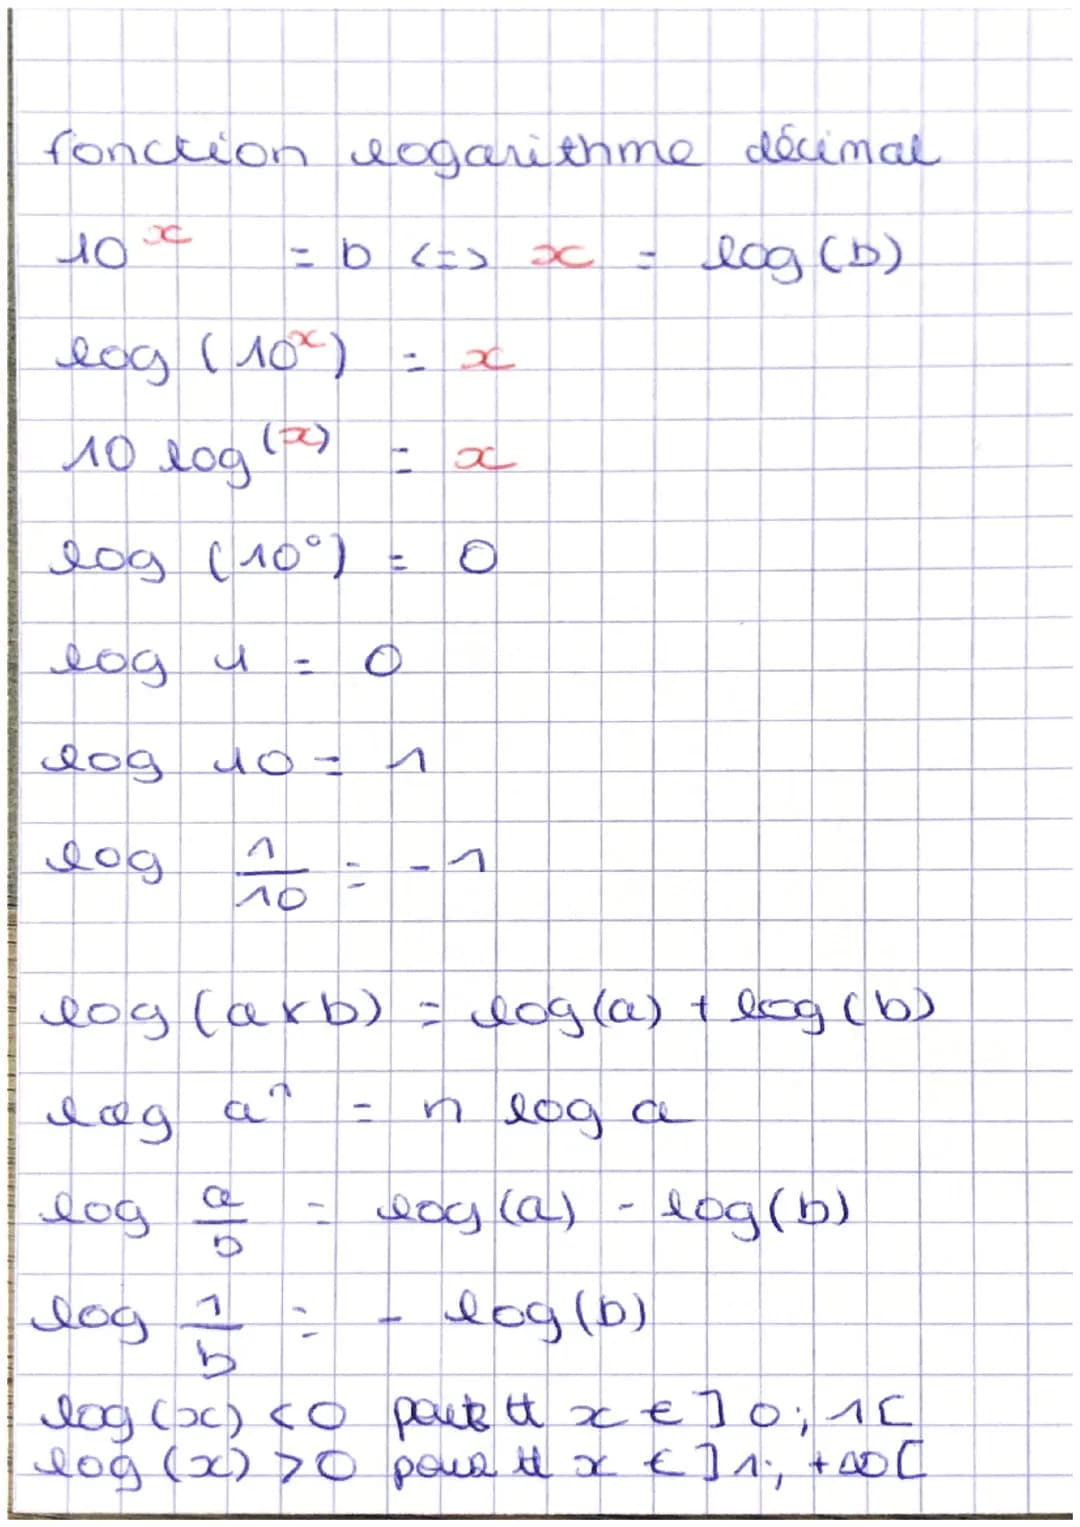 fonction logarithme décimal
10^x = b <=> x = log(b)
log (10^x) = x
10 log^(x) = x
log (10^0) = 0
log 1 = 0
log 10 = 1
log 1/10 = -1
log (a×b) = log(a) + log(b)
log a^n = n log a
log a/b = log(a) - log(b)
log 1/b = - log(b)
log(x) <0 pour tt x ∈ ]0; 1[
log (x) >0 pour tt x ∈ ]1; +∞[